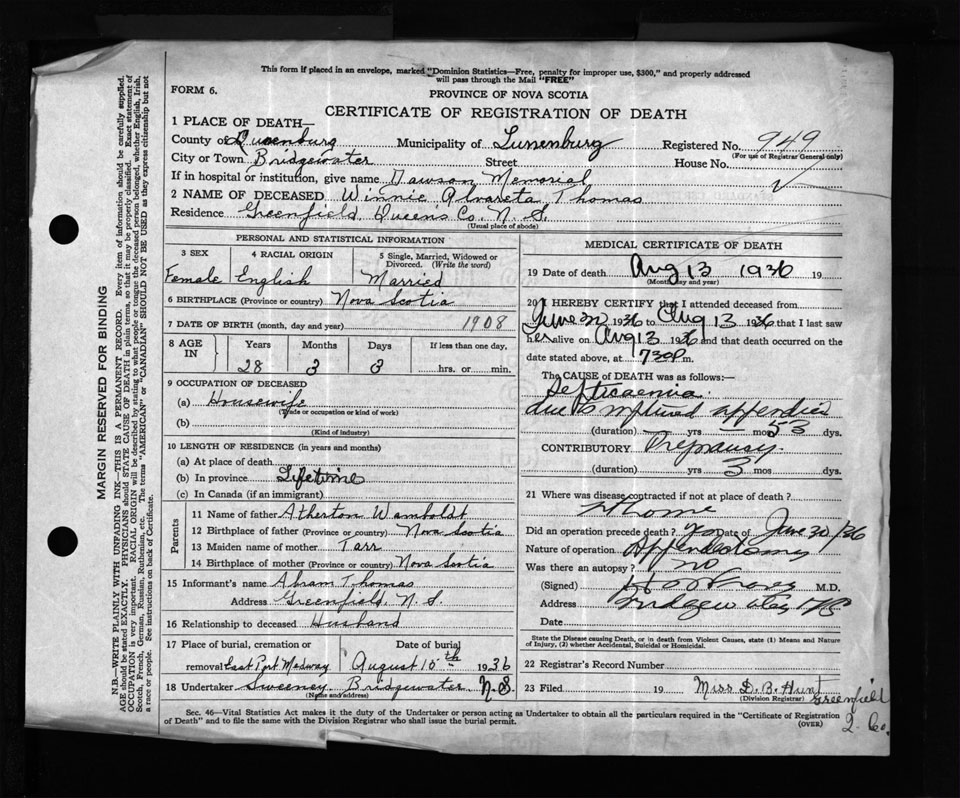 This form if placed in an envelope, marked "Dominion Statistics—Free, penalty for improper use, $300," and properly addressed
will pass through the Mail "FREE"
FORM 6.
PROVINCE OF NOVA SCOTIA
CERTIFICATE OF REGISTRATION OF DEATH
1 PLACE OF DEATH—
County of Lunenburg Municipality of Lunenburg Registered No. 949
(For use of Registrar General only)
City or Town Bridgewater Street House No.
If in hospital or institution, give name Dawson Memorial
2 NAME OF DECEASED Winnie Alvareta Thomas
Residence Greenfield, Queens Co. N. S.
(Usual place of abode)
PERSONAL AND STATISTICAL INFORMATION
3 SEX 4 RACIAL ORIGIN 5 Single, Married, Widowed or
Divorced. (Write the word)
Female English Married
6 BIRTHPLACE (Province or country) Nova Scotia
7 DATE OF BIRTH (month, day and year) 1908
8 AGE IN Years Months Days If less than one day,
28 3 3 hrs. or min.
9 OCCUPATION OF DECEASED
(a) Housewife
(Trade or occupation or kind of work)
(b)
(Kind of industry)
10 LENGTH OF RESIDENCE (in years and months)
(a) At place of death
(b) In province Lifetime
(c) In Canada (if an immigrant)
Parents
11 Name of father Atherton Wamboldt
12 Birthplace of father (Province or country) Nova Scotia
13 Maiden name of mother Tarr
14 Birthplace of mother (Province or country) Nova Scotia
15 Informant's name Abram Thomas
Address Greenfield, N. S.
16 Relationship to deceased Husband
17 Place of burial, cremation or Date of burial
removal East Port Medway August 15th 1936
18 Undertaker Sweeney Bridgewater N. S.
(Name and address)
MEDICAL CERTIFICATE OF DEATH
19 Date of death Aug 13 1936 19
(Month, day and year)
20 I HEREBY CERTIFY that I attended deceased from
June 30 1936 to Aug 13 1936 that I last saw
her alive on Aug 13 1936 and that death occurred on the
date stated above, at 730P m.
The CAUSE OF DEATH was as follows:—
Septicaemia
due to ruptured appendix
(duration) yrs — mos 53 dys.
CONTRIBUTORY Pregnancy.
(duration) yrs 3 mos dys.
21 Where was disease contracted if not at place of death?
Home
Did an operation precede death? Yes Date of June 30/36
Nature of operation Appendectomy
Was there an autopsy? NO
(Signed) M.D.
Address Bridgewater NS
Date
State the Disease causing Death, or in death from Violent Causes, state (1) Means and Nature
of Injury, (2) whether Accidental, Suicidal or Homicidal.
22 Registrar's Record Number
23 Filed 19 Miss D. B. Hunt
(Division Registrar)
Greenfield
Q. Co.
Sec. 46—Vital Statistics Act makes it the duty of the Undertaker or person acting as Undertaker to obtain all the particulars required in the "Certificate of Registration
of Death" and to file the same with the Division Registrar who shall issue the burial permit.
(OVER)
MARGIN RESERVED FOR BINDING
N.B.—WRITE PLAINLY WITH UNFADING INK—THIS IS A PERMANENT RECORD. Every item of information should be carefully supplied.
AGE should be stated EXACTLY. PHYSICIANS should STATE CAUSE OF DEATH in plain terms, so that it may be properly classified. Exact statement of
OCCUPATION is very important. RACIAL ORIGIN will be described by stating to what people or tongue the deceased person belonged, whether English, Irish,
Scotch, French, German, Russian, Ruthenian, etc. The terms "AMERICAN" or "CANADIAN" SHOULD NOT BE USED as they express citizenship but not
a race or people. See instructions on back of Certificate.